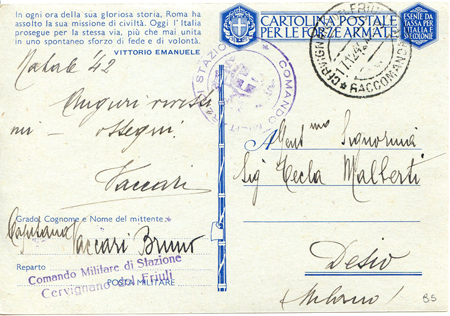 In ogni ora della sua gloriosa storia, Roma ha
assolto la sua missione di civiltà. Oggi l'Italia
prosegue per la stessa via, più che mai unita
in uno spontaneo sforzo di fede e di volontà.
VITTORIO EMANUELE
Natale '42
Auguri vivissi
mi - ossequi.
Vaccari
Grado, Cognome e Nome del mittente
Capitano Vaccari Bruno
Reparto
Comando Militare di Stazione
Cervignano del Friuli
POSTA MILITARE
CARTOLINA POSTALE
PER LE FORZE ARMATE
ESENTE DA
TASSA PER
L'ITALIA E
COLONIE
COMANDO STAZIONE
CERVIGNANO FRIULI
RACCOMAND
Gent ma Signorina
Sig Tecla Malberti
Desio
(Milano)
BS